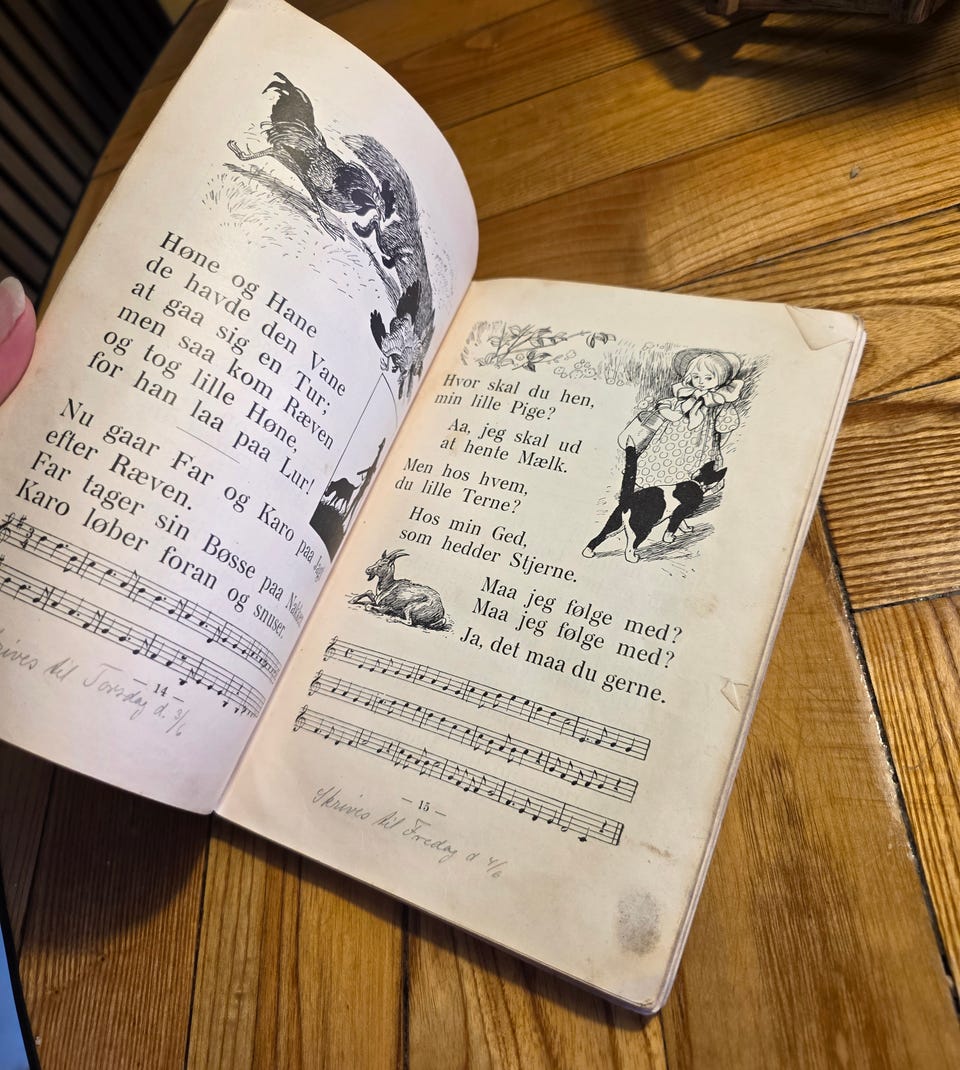 Høne og Hane
de havde den Vane
at gaa sig en Tur;
men saa kom Ræven
og tog lille Høne,
for han laa paa Lur!
Nu gaar Far og Karo paa Jagt
efter Ræven.
Far tager sin Bøsse paa Nakken,
Karo løber foran og snuser.
— 14 —
Skrives til Torsdag d. 3/6
Hvor skal du hen,
min lille Pige?
Aa, jeg skal ud
at hente Mælk.
Men hos hvem,
du lille Terne?
Hos min Ged,
som hedder Stjerne.
Maa jeg følge med?
Maa jeg følge med?
Ja, det maa du gerne.
— 15 —
Skrives til Fredag d 4/6